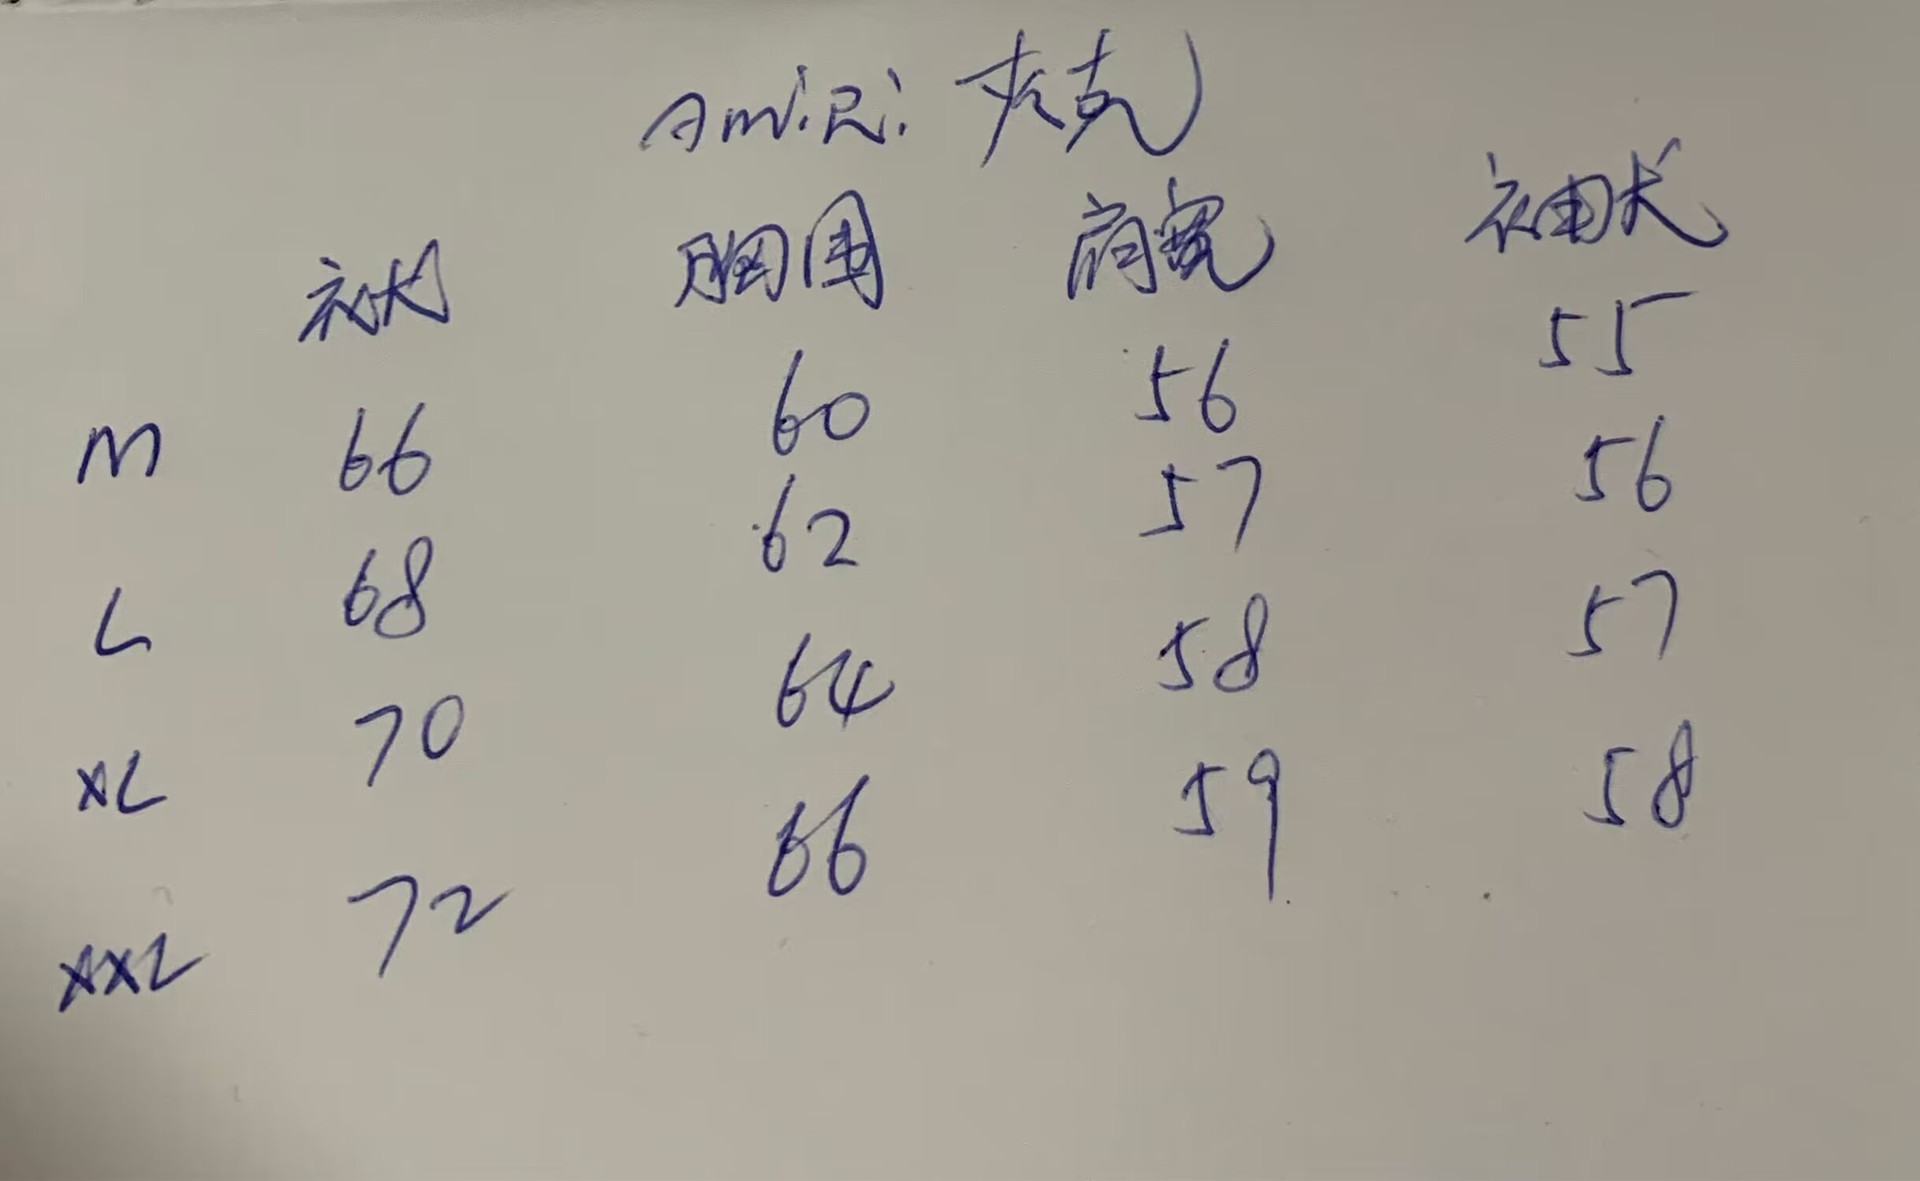 AmiRi 夹克
衣长 胸围 肩宽 袖长
M 66 60 56 55
L 68 62 57 56
XL 70 64 58 57
XXL 72 66 59 58